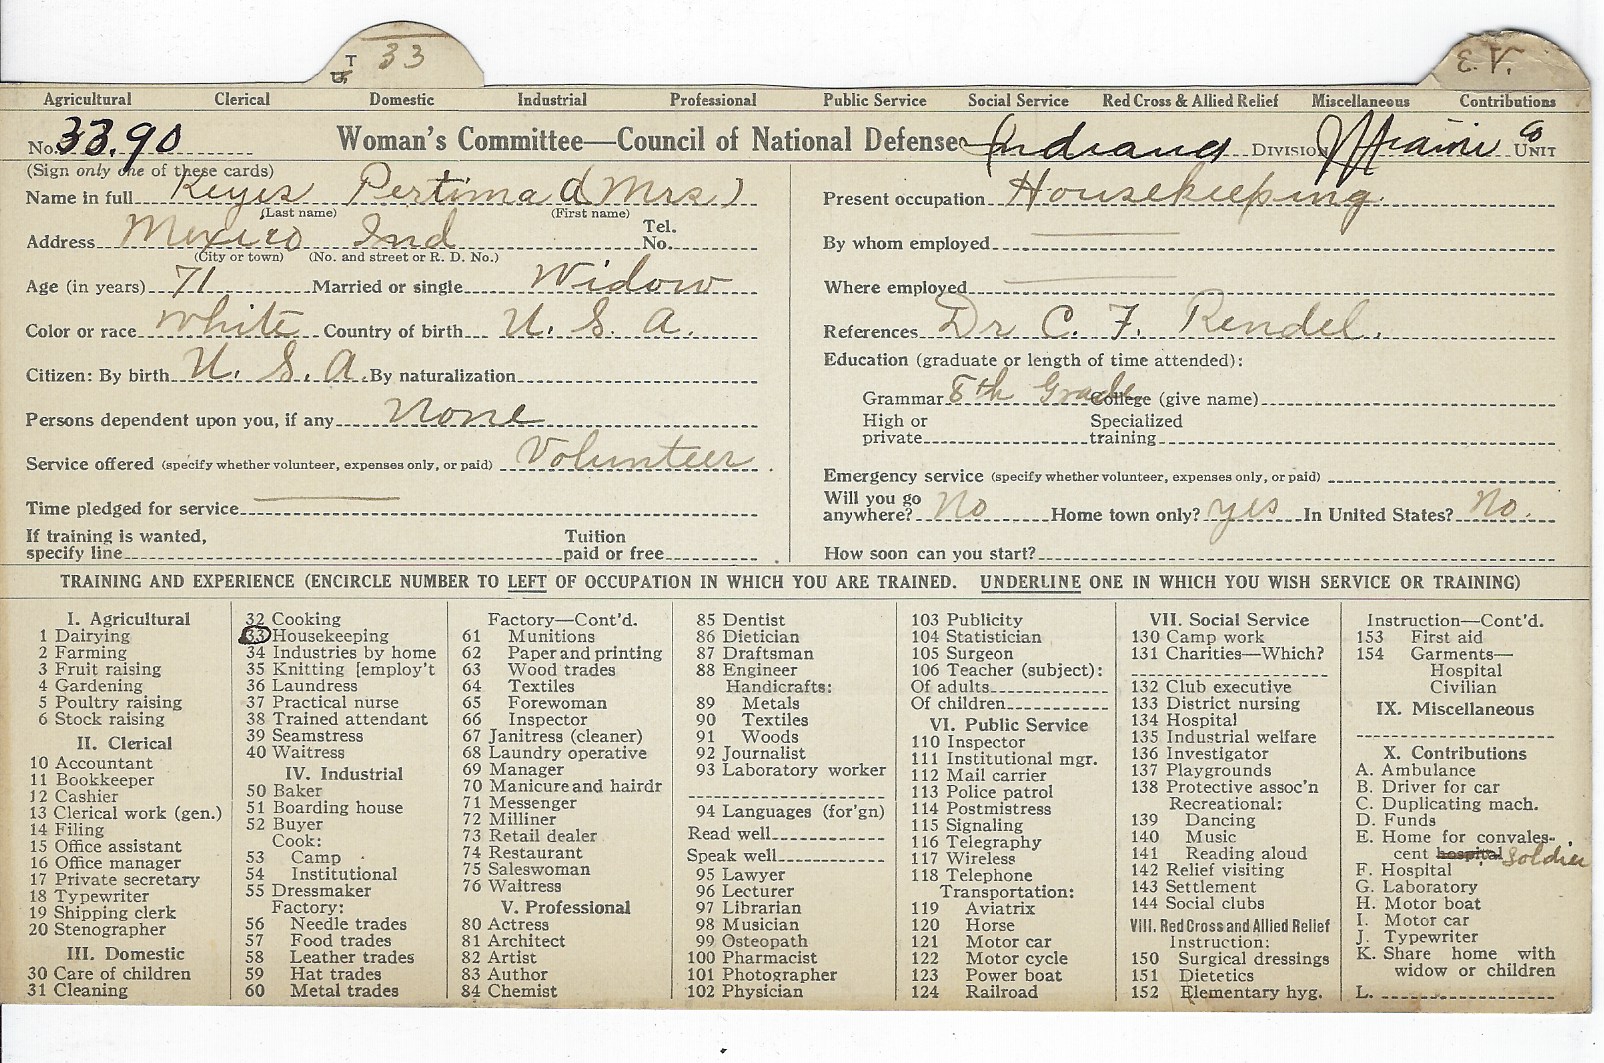 T 33
E. V.
Agricultural Clerical Domestic Industrial Professional Public Service Social Service Red Cross & Allied Relief Miscellaneous Contributions
No. 33.90 Woman's Committee—Council of National Defense Indiana Division Miami Co Unit
(Sign only one of these cards)
Name in full Keyes Pertima (Mrs.)
(Last name) (First name)
Address Mexico Ind Tel. No.
(City or town) (No. and street or R. D. No.)
Age (in years) 71 Married or single Widow
Color or race White Country of birth U. S. A.
Citizen: By birth U. S. A. By naturalization
Persons dependent upon you, if any None
Service offered (specify whether volunteer, expenses only, or paid) Volunteer.
Time pledged for service
If training is wanted, specify line Tuition paid or free
Present occupation Housekeeping
By whom employed
Where employed
References Dr C. F. Rendel.
Education (graduate or length of time attended):
Grammar 8th Grade College (give name)
High or private Specialized training
Emergency service (specify whether volunteer, expenses only, or paid)
Will you go anywhere? No Home town only? yes In United States? No.
How soon can you start?
TRAINING AND EXPERIENCE (ENCIRCLE NUMBER TO LEFT OF OCCUPATION IN WHICH YOU ARE TRAINED. UNDERLINE ONE IN WHICH YOU WISH SERVICE OR TRAINING)
I. Agricultural
1 Dairying
2 Farming
3 Fruit raising
4 Gardening
5 Poultry raising
6 Stock raising
II. Clerical
10 Accountant
11 Bookkeeper
12 Cashier
13 Clerical work (gen.)
14 Filing
15 Office assistant
16 Office manager
17 Private secretary
18 Typewriter
19 Shipping clerk
20 Stenographer
III. Domestic
30 Care of children
31 Cleaning
32 Cooking
33 Housekeeping
34 Industries by home
35 Knitting [employ't
36 Laundress
37 Practical nurse
38 Trained attendant
39 Seamstress
40 Waitress
IV. Industrial
50 Baker
51 Boarding house
52 Buyer
Cook:
53 Camp
54 Institutional
55 Dressmaker
Factory:
56 Needle trades
57 Food trades
58 Leather trades
59 Hat trades
60 Metal trades
Factory—Cont'd.
61 Munitions
62 Paper and printing
63 Wood trades
64 Textiles
65 Forewoman
66 Inspector
67 Janitress (cleaner)
68 Laundry operative
69 Manager
70 Manicure and hairdr
71 Messenger
72 Milliner
73 Retail dealer
74 Restaurant
75 Saleswoman
76 Waitress
V. Professional
80 Actress
81 Architect
82 Artist
83 Author
84 Chemist
85 Dentist
86 Dietician
87 Draftsman
88 Engineer
Handicrafts:
89 Metals
90 Textiles
91 Woods
92 Journalist
93 Laboratory worker
94 Languages (for'gn)
Read well
Speak well
95 Lawyer
96 Lecturer
97 Librarian
98 Musician
99 Osteopath
100 Pharmacist
101 Photographer
102 Physician
103 Publicity
104 Statistician
105 Surgeon
106 Teacher (subject):
Of adults
Of children
VI. Public Service
110 Inspector
111 Institutional mgr.
112 Mail carrier
113 Police patrol
114 Postmistress
115 Signaling
116 Telegraphy
117 Wireless
118 Telephone
Transportation:
119 Aviatrix
120 Horse
121 Motor car
122 Motor cycle
123 Power boat
124 Railroad
VII. Social Service
130 Camp work
131 Charities—Which?
132 Club executive
133 District nursing
134 Hospital
135 Industrial welfare
136 Investigator
137 Playgrounds
138 Protective assoc'n
Recreational:
139 Dancing
140 Music
141 Reading aloud
142 Relief visiting
143 Settlement
144 Social clubs
VIII. Red Cross and Allied Relief
Instruction:
150 Surgical dressings
151 Dietetics
152 Elementary hyg.
Instruction—Cont'd.
153 First aid
154 Garments—
Hospital
Civilian
IX. Miscellaneous
X. Contributions
A. Ambulance
B. Driver for car
C. Duplicating mach.
D. Funds
E. Home for convales-
cent hospital Soldier
F. Hospital
G. Laboratory
H. Motor boat
I. Motor car
J. Typewriter
K. Share home with
widow or children
L.